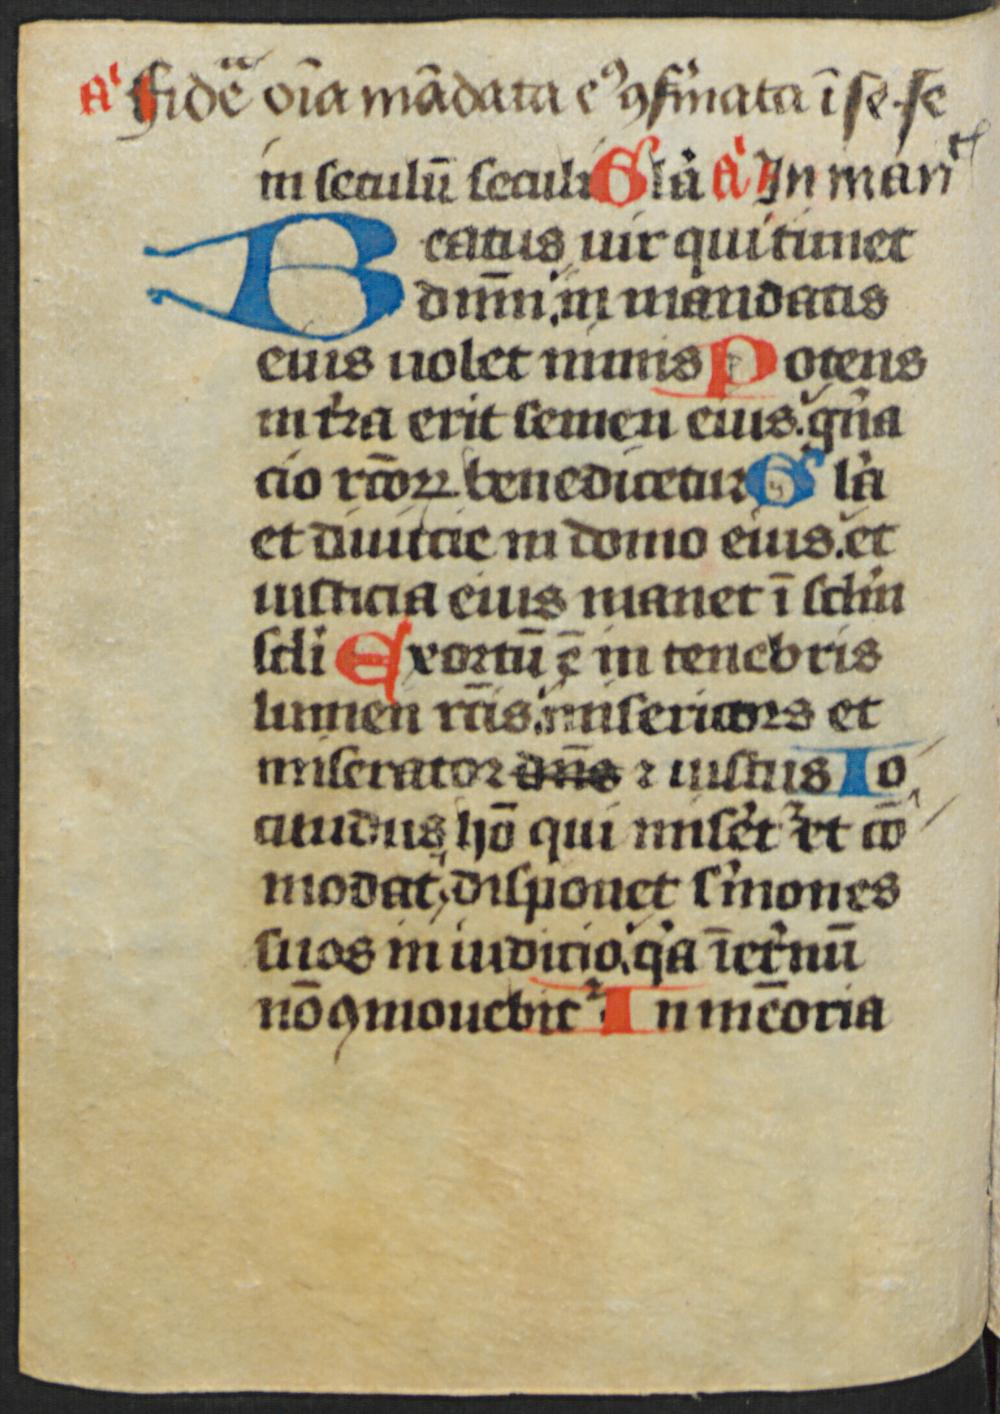 A͛ fidēᵃ oīa mādata eꝰ ꝯfi͛mata ī se. se
in seculū seculi Gl͛a A͛ In man
Beatus uir qui timet
dn̄m in mandatis
eius uolet nimis Potens
in tr͛a erit semen eius. gn͛a
cio rcōꝝ benedicetur Gl͛a
et diuicie in domo eius. et
iusticia eius manet ī sclm̄
scli Exortū ē in tenebris
lumen rc̄is. misericors et
miserator dn̄s ⁊ iustus Io
cundus hō qui miser͛et᷑ et cō
modat, disponet s͛mones
suos in iudicio. q͛a ī et͛nū
nō ꝯmouebit᷑ In mēoria